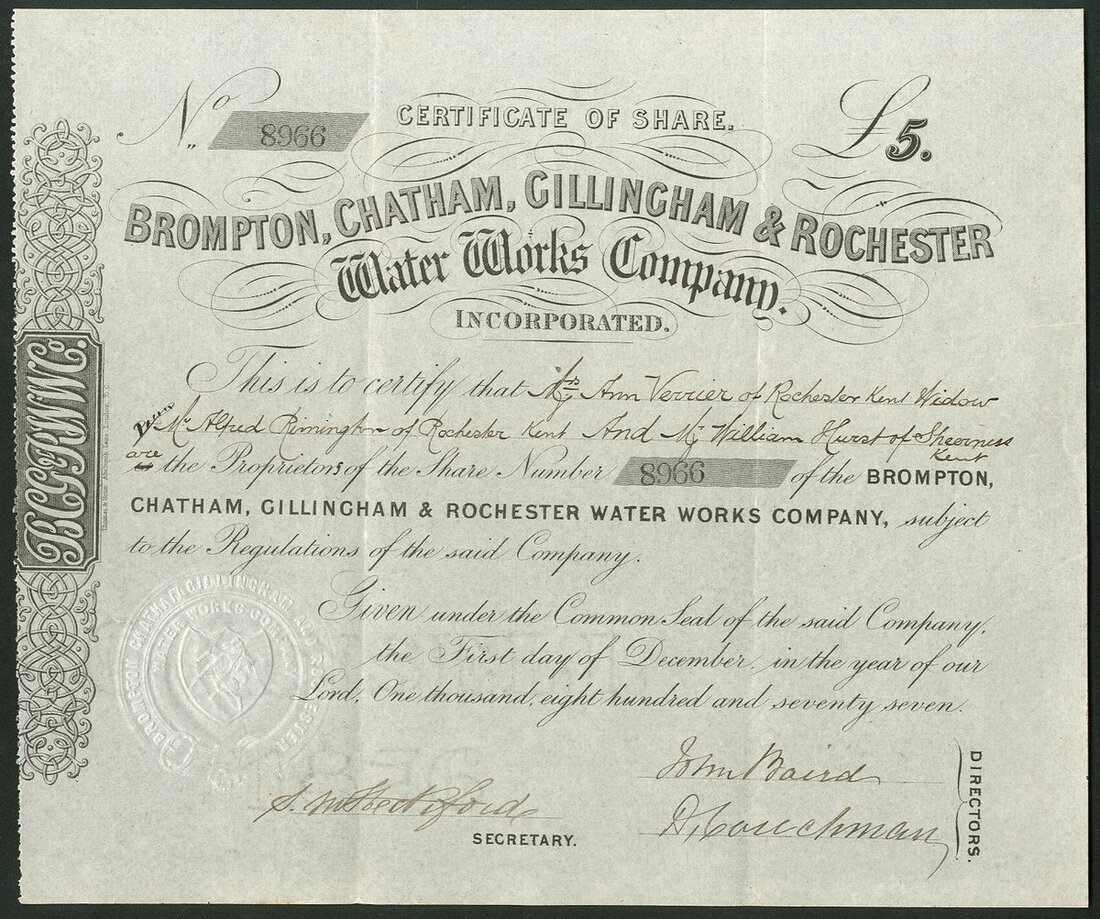 No. 8966 CERTIFICATE OF SHARE. £5.
BROMPTON, CHATHAM, GILLINGHAM & ROCHESTER
Water Works Company.
INCORPORATED.
This is to certify that Mrs Ann Verrier of Rochester Kent Widow
Mr Alfred Rimington of Rochester Kent And Mr William Hurst of Sheerness
Kent
are the Proprietors of the Share Number 8966 of the BROMPTON,
CHATHAM, GILLINGHAM & ROCHESTER WATER WORKS COMPANY, subject
to the Regulations of the said Company.
Given under the Common Seal of the said Company,
the First day of December, in the year of our
Lord, One thousand, eight hundred and seventy seven.
BROMPTON CHATHAM GILLINGHAM AND ROCHESTER
WATER WORKS COMPANY
John Baird
Couchman
DIRECTORS.
SECRETARY.
B.C.G.&R.W.W.Co.